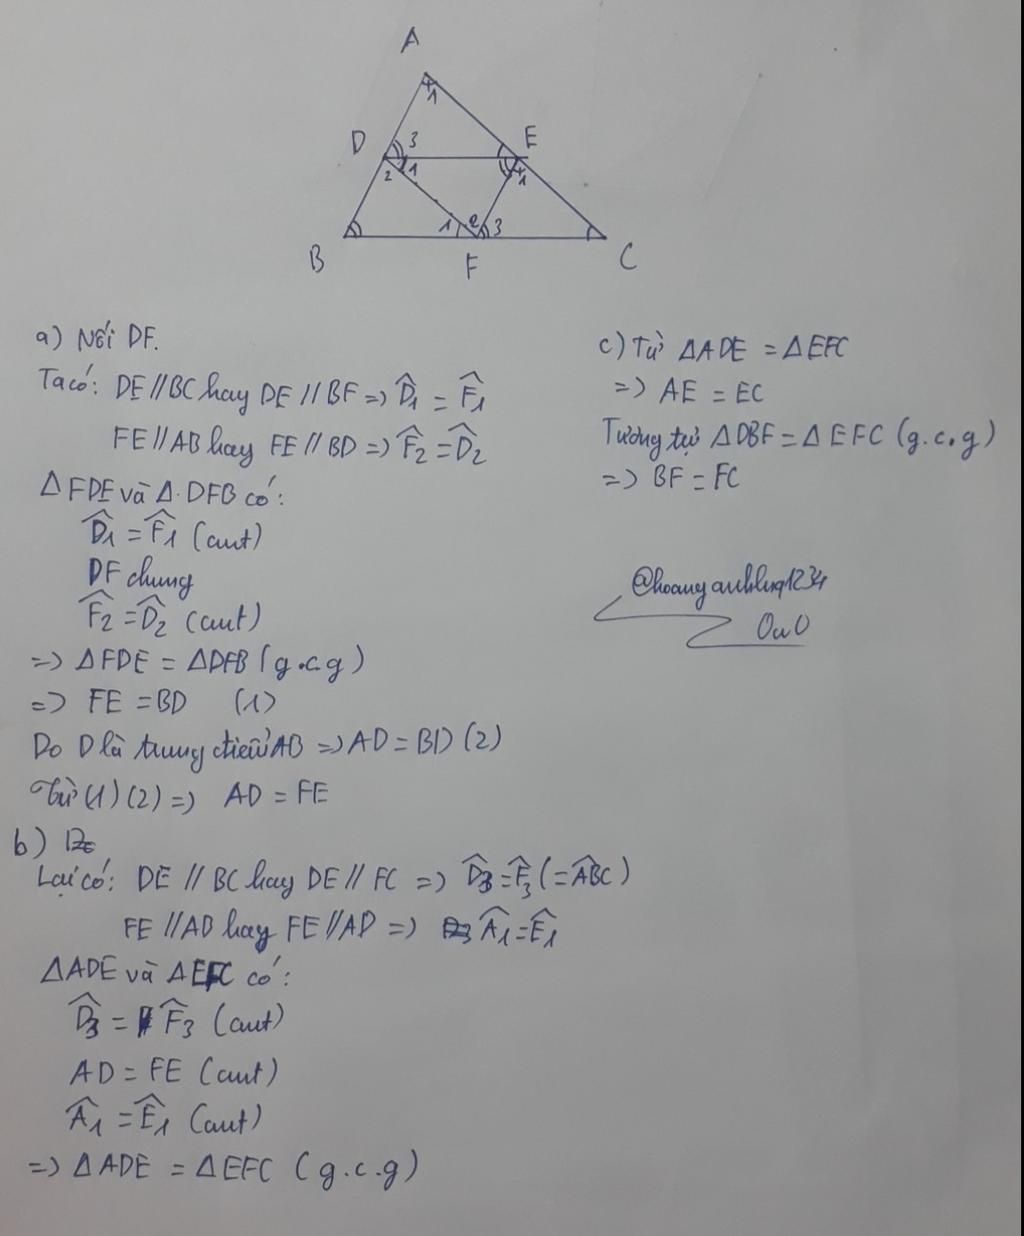 A
1
D 3 E
2 1 1
1 2 3
B F C
a) Nối DF.
Ta có: DE // BC hay DE // BF => D̂1 = F̂1
FE // AB hay FE // BD => F̂2 = D̂2
Δ FDE và Δ.DFB có:
D̂1 = F̂1 (cmt)
DF chung
F̂2 = D̂2 (cmt)
=> Δ FDE = Δ DFB (g.c.g)
=> FE = BD (1)
Do D là trung điểm AB => AD = BD (2)
Từ (1) (2) => AD = FE
b)
Lại có: DE // BC hay DE // FC => D̂3 = F̂3 (= ABC)
FE // AB hay FE // AD => Â1 = Ê1
Δ ADE và Δ EFC có:
D̂3 = F̂3 (cmt)
AD = FE (cmt)
Â1 = Ê1 (cmt)
=> Δ ADE = Δ EFC (g.c.g)
c) Từ Δ ADE = Δ EFC
=> AE = EC
Tương tự Δ DBF = Δ EFC (g.c.g)
=> BF = FC
OwO